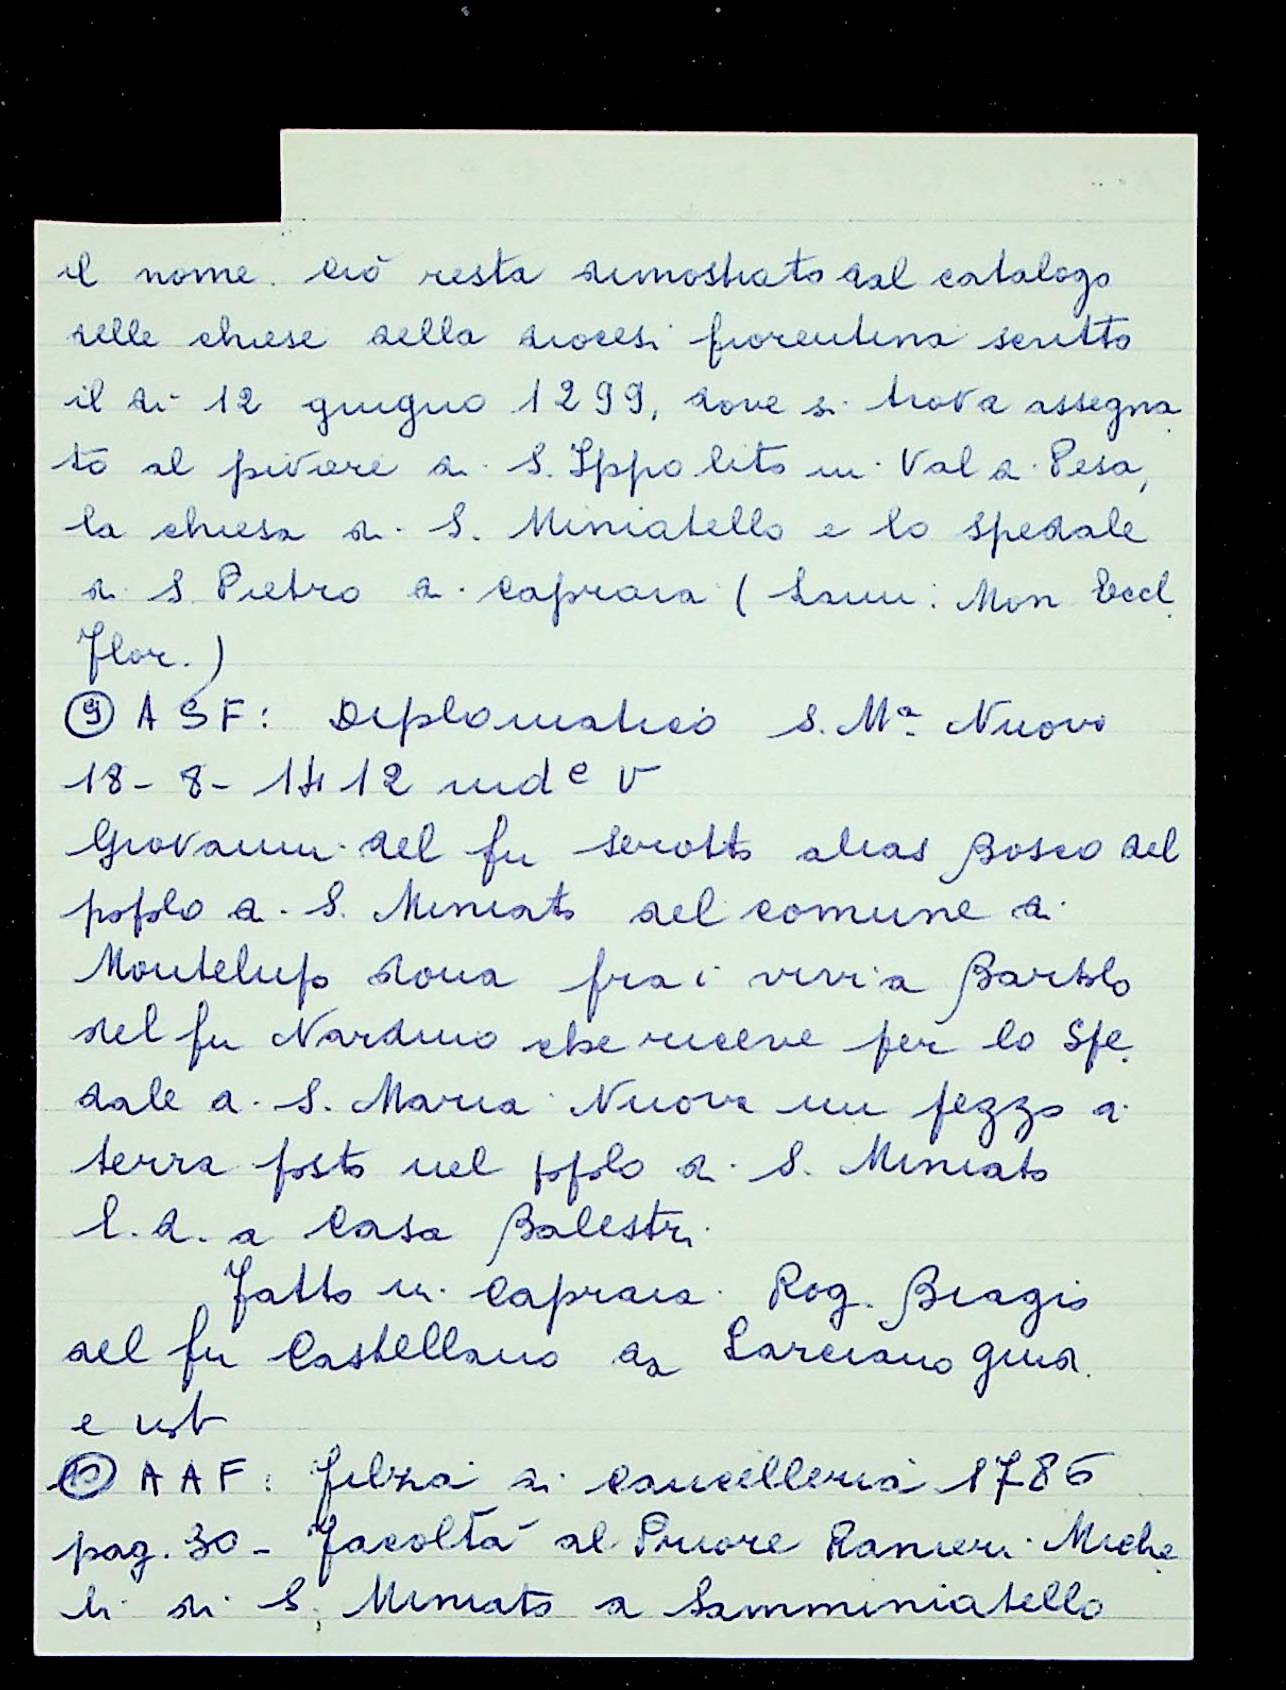 il nome. Ciò resta dimostrato dal catalogo
delle chiese della diocesi fiorentina scritto
il dì 12 giugno 1299, dove si trova assegna
to al piviere di S. Ippolito in Val di Pesa,
la chiesa di S. Miniatello e lo spedale
di S. Pietro di Capraia (Lami: Mon Eccl.
Flor.)
⑨ ASF: Diplomatico S. Mª Nuova
18-8-1412 indᵉ V
Giovanni del fu Serotto alias Bosco del
popolo di S. Miniato del comune di
Montelupo dona fra i vivi a Bartolo
del fu Nardino che riceve per lo Spe
dale di S. Maria Nuova un pezzo di
terra posto nel popolo di S. Miniato
l. d. a Casa Balestri
Fatto in Capraia. Rog. Biagio
del fu Castellano da Larciano giud.
e not
⑩ AAF: Filza di Cancelleria 1786
pag. 30 - Facoltà al Priore Ranieri Miche
li di S. Miniato a Samminiatello